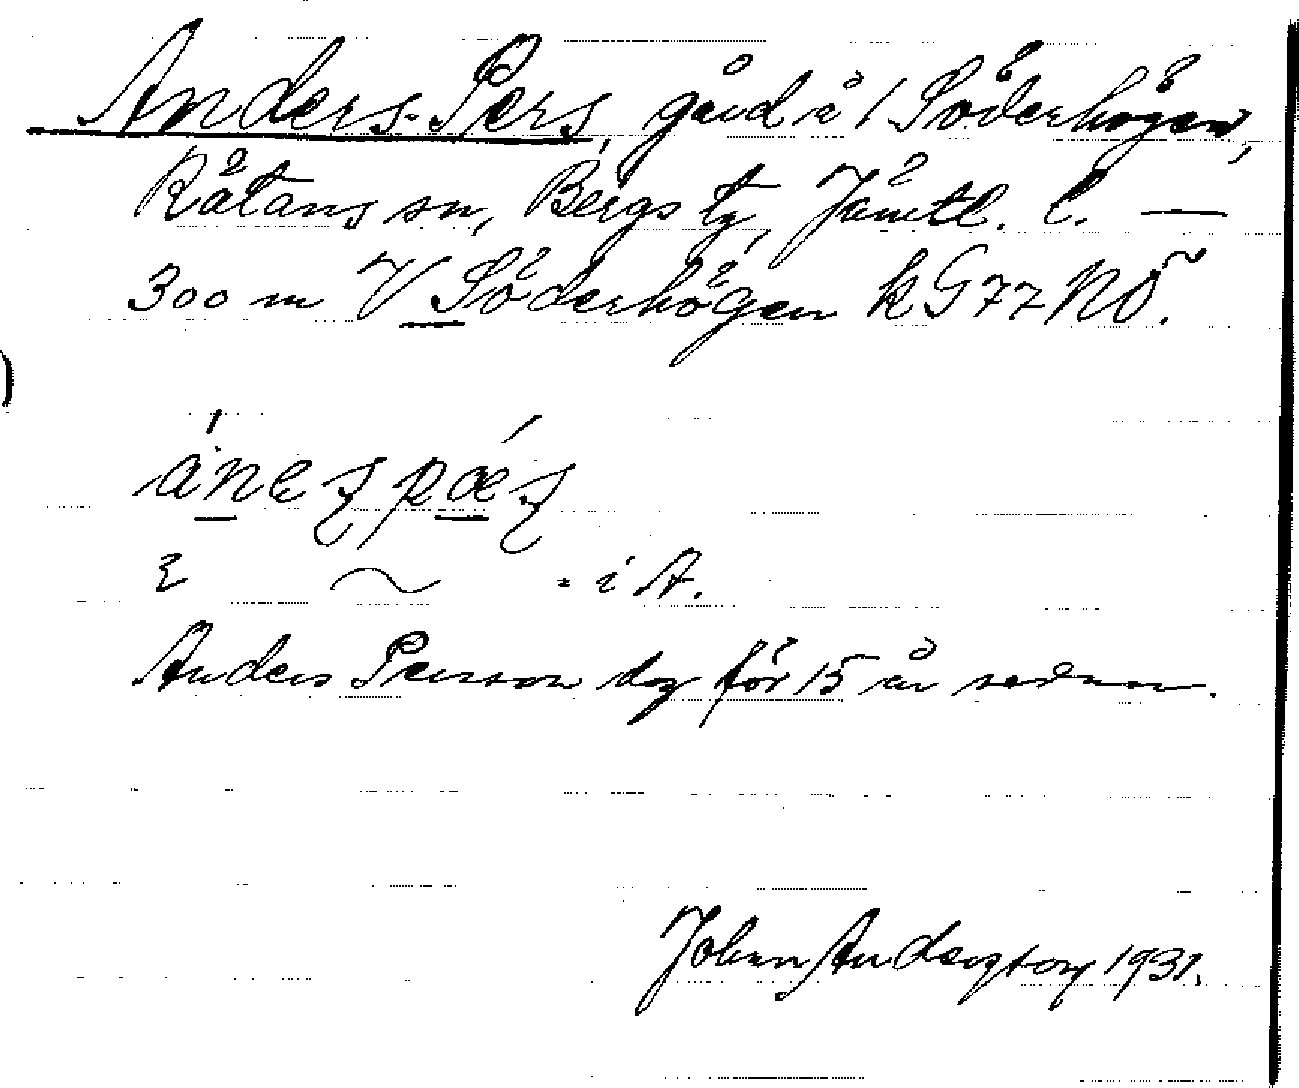 Anders-Pers, gård å 1 Söderhögen,
Rätans sn, Bergs tg, Jämtl. l. —
300 m V Söderhögen k G77 NÖ.
ánes pǽs
i A.
Anders Persson dog för 15 år sedan.
Johan 1931.